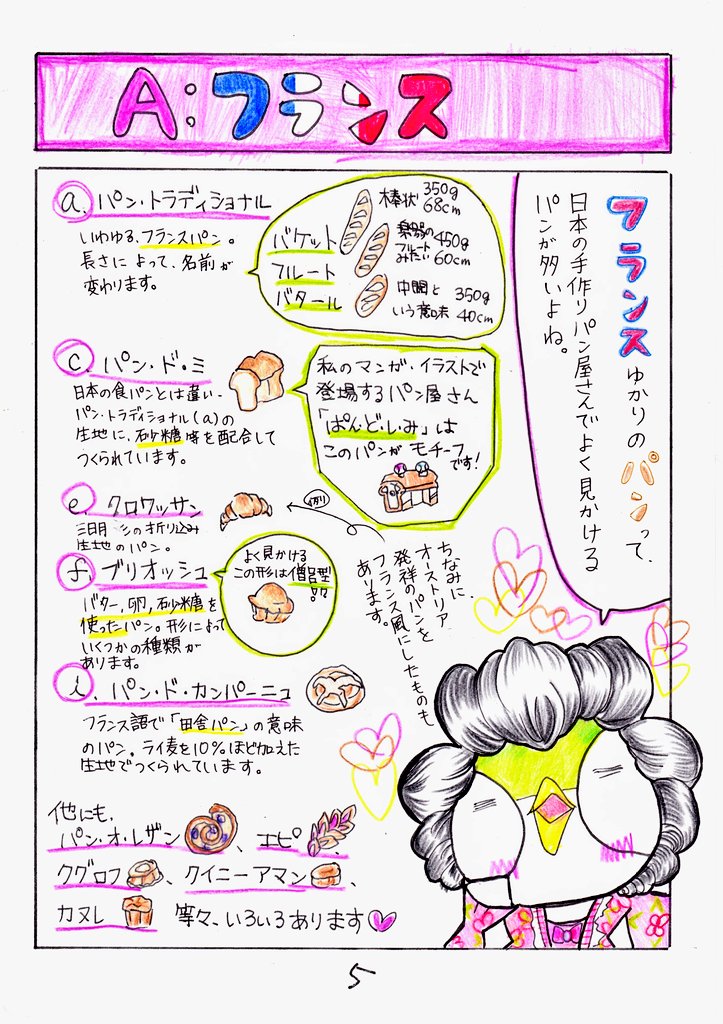 A:フランス
フランス ゆかりの パンって、
日本の手作りパン屋さんでよく見かける
パンが多いよね。
a. パン・トラディショナル
いわゆる、フランスパン。
長さによって、名前が
変わります。
バゲット
棒状 350g
68cm
フルート
楽器の
フルート
みたい 450g
60cm
バタール
中間と
いう意味 350g
40cm
c. パン・ド・ミ
日本の食パンとは違い、
パン・トラディショナル(a)の
生地に、砂糖等を配合して
つくられています。
私のマンガ・イラストで
登場するパン屋さん
「ぱんど・みみ」は
このパンが モチーフ
です!
e. クロワッサン
三日月形の折り込み
生地のパン。
ちなみに、
オーストリア
発祥のパンを
フランス風にしたものも
あります。
f. ブリオッシュ
バター,卵,砂糖を
使ったパン。形によって
いくつかの種類が
あります。
よく見かける
この形は僧侶型
i. パン・ド・カンパーニュ
フランス語で「田舎パン」の意味
のパン。ライ麦を10%ほど加えた
生地でつくられています。
他にも、
パン・オ・レザン、エピ、
クグロフ、クイニーアマン、
カヌレ 等々、いろいろあります
5